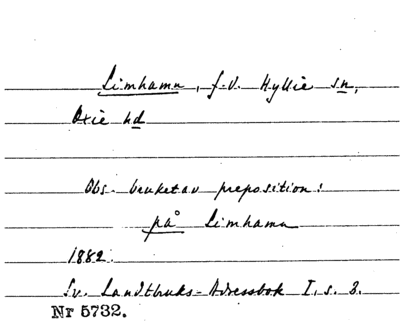 Limhamn, f.d. Hyllie sn,
Oxie hd
Obs. bruket av preposition:
på Limhamn
1882.
Sv. Landtbruks-Adressbok I, s. 3.
Nr 5732.